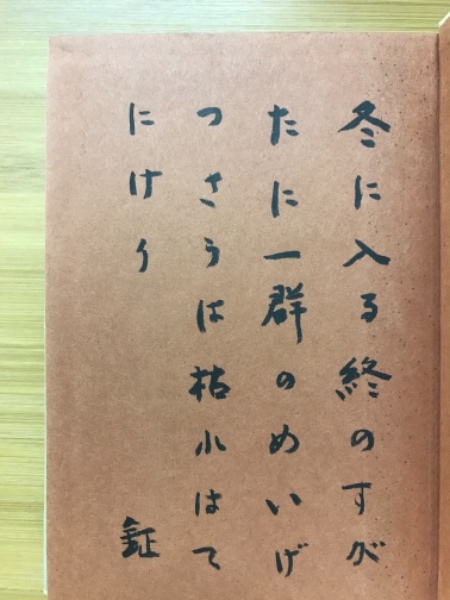 冬に入る終のすが
たに一群のめいげ
つさうは枯れはて
にけり
鉦